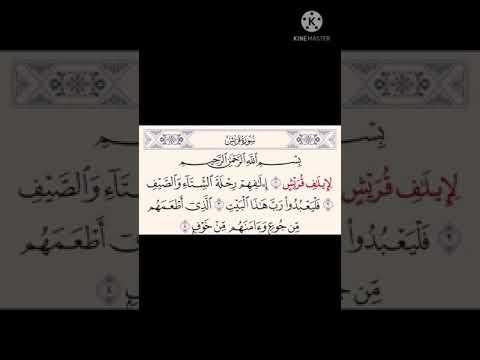 K
KINEMASTER
سُورَةُ قُرَيْشٍ
بِسْمِ ٱللَّهِ ٱلرَّحْمَٰنِ ٱلرَّحِيمِ
لِإِيلَٰفِ قُرَيْشٍ ١ إِۦلَٰفِهِمْ رِحْلَةَ ٱلشِّتَآءِ وَٱلصَّيْفِ
٢ فَلْيَعْبُدُواْ رَبَّ هَٰذَا ٱلْبَيْتِ ٣ ٱلَّذِىٓ أَطْعَمَهُم
مِّن جُوعٍ وَءَامَنَهُم مِّنْ خَوْفٍۭ ٤